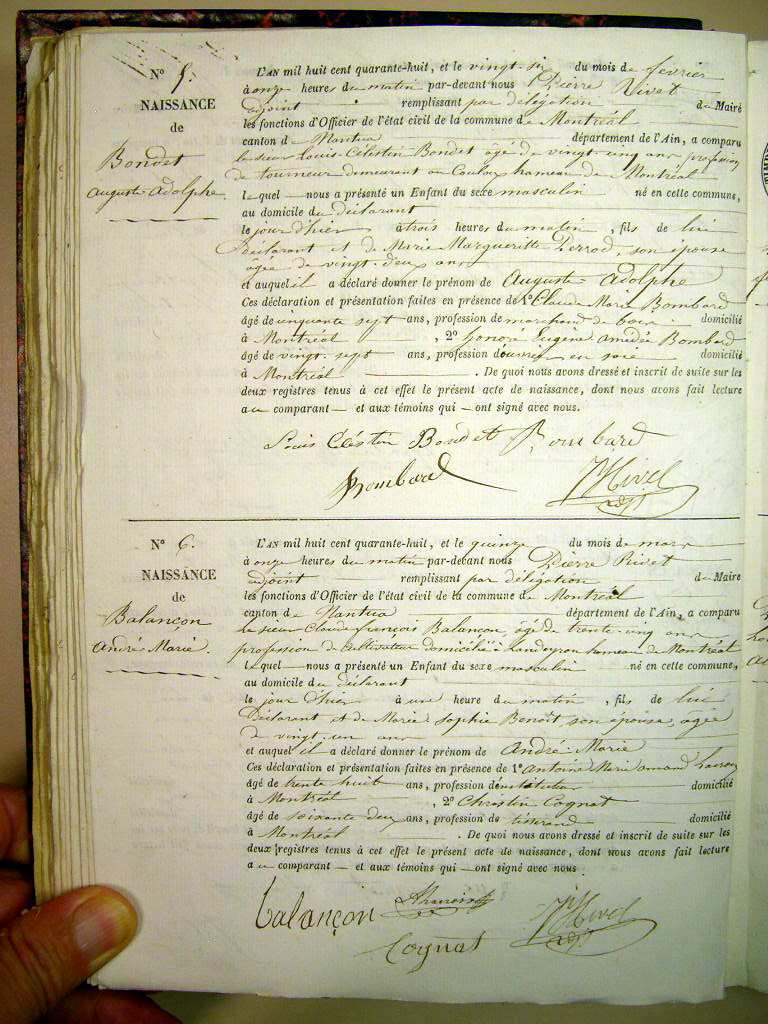 N° 5.
NAISSANCE
de
Bondet
Auguste Adolphe.
L'AN mil huit cent quarante-huit, et le vingt-six du mois de février
à onze heures du matin par-devant nous Pierre Rivet
adjoint remplissant par délégation du Maire
les fonctions d'Officier de l'état civil de la commune de Montréal
canton de Nantua département de l'Ain, a comparu
le sieur Louis Célestin Bondet âgé de vingt-cinq ans, profession
de tourneur demeurant au hameau de Montréal
lequel nous a présenté un Enfant du sexe masculin né en cette commune,
au domicile du déclarant
le jour d'hier à trois heures du matin, fils de lui
Déclarant et de Marie Margueritte Perrod, son épouse
âgée de vingt-deux ans
et auquel il a déclaré donner le prénom de Auguste Adolphe
Ces déclaration et présentation faites en présence de 1° Claude Marie Bombard
âgé de cinquante sept ans, profession de marchand de bois domicilié
à Montréal, 2° honoré Eugène Amédée Bombard
âgé de vingt-sept ans, profession d'ouvrier en soie domicilié
à Montréal. De quoi nous avons dressé et inscrit de suite sur les
deux registres tenus à cet effet le présent acte de naissance, dont nous avons fait lecture
au comparant — et aux témoins qui — ont signé avec nous.
Louis Célestin Bondet Bombard
Bombard Rivet
adjt
N° 6.
NAISSANCE
de
Balançon
André Marie.
L'AN mil huit cent quarante-huit, et le quinze du mois de mars
à onze heures du matin, par-devant nous Pierre Rivet
adjoint remplissant par délégation du Maire
les fonctions d'Officier de l'état civil de la commune de Montréal
canton de Nantua département de l'Ain, a comparu
le sieur Claude françois Balançon, âgé de trente-cinq ans
profession de cultivateur domicilié à Landeyron hameau de Montréal
lequel nous a présenté un Enfant du sexe masculin né en cette commune,
au domicile du déclarant
le jour d'hier à une heure du matin, fils de lui
Déclarant et de Marie Sophie Benoît son épouse, agée
de vingt-un ans
et auquel il a déclaré donner le prénom de André-Marie
Ces déclaration et présentation faites en présence de 1° Antoine Marie amand
âgé de trente huit ans, profession d'instituteur domicilié
à Montréal, 2° Christin Cognat
âgé de soixante deux ans, profession de tisserand domicilié
à Montréal. De quoi nous avons dressé et inscrit de suite sur les
deux registres tenus à cet effet le présent acte de naissance, dont nous avons fait lecture
au comparant — et aux témoins qui — ont signé avec nous.
Balançon
Cognat Rivet
adjt